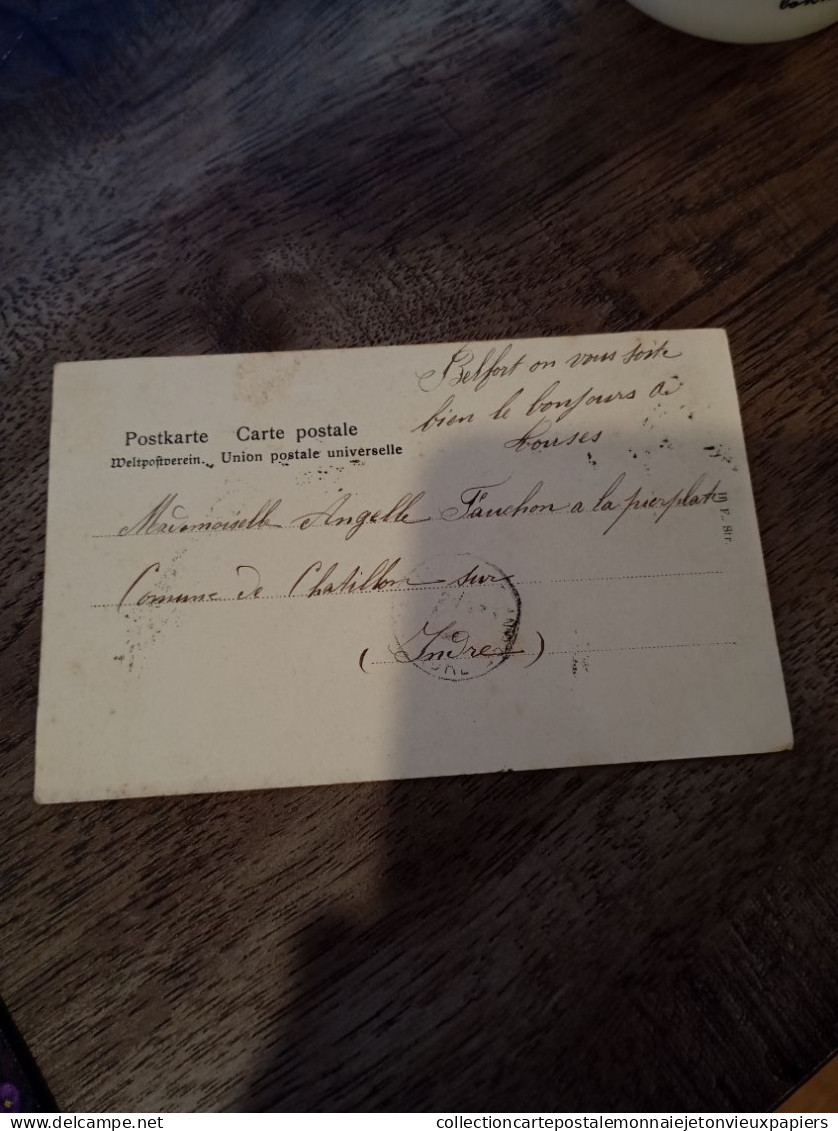 Belfort on vous soite
bien le bonjours a
touses
Postkarte Carte postale
Weltpostverein. Union postale universelle
Mademoiselle Angelle Fauchon a la pierplat
Comune de Chatillon sur
(Indre)
INDRE
Str.
collectioncartepostalemonnaiejetonvieuxpapiers